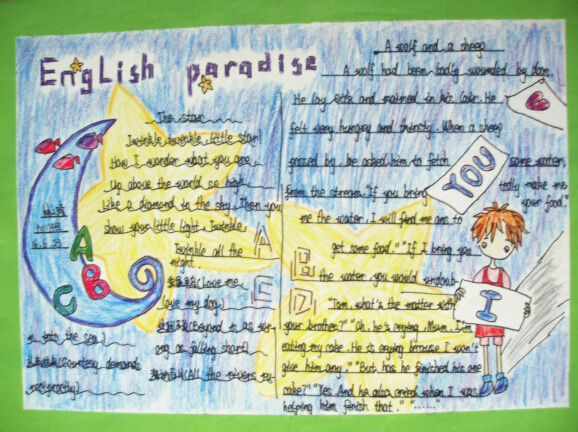 English paradise
The star
Twinkle twinkle little star
How I wonder what you are
Up above the world so high
Like a diamond in the sky Then you
show your little light, Twinkle
Twinkle all the
night.
(Love me,
love my dog)
(Beyond is as wr-
ong as falling short)
(All the rivers ru-
n into the sea)
(Courtesy demands
reciprocity)
A
B
C
A
B
C
D
A wolf and a sheep
A wolf had been badly wounded by dogs.
He lay sick and maimed in his lair. He
felt very hungry and thirsty. When a sheep
passed by, he asked him to fetch some water
from the stream. "If you bring
me the water, I will find me ans to
get some food." "If I bring you
the water, you would undoub-
tedly make me
your food."
YOU
I
"Tom, what's the matter with
your brother?" "Oh, he's crying, Mum. I'm
eating my cake. He is crying because I won't
give him any." "But has he finished his one
cake?" "Yes. And he also cried when I was
helping him finish that." "......"